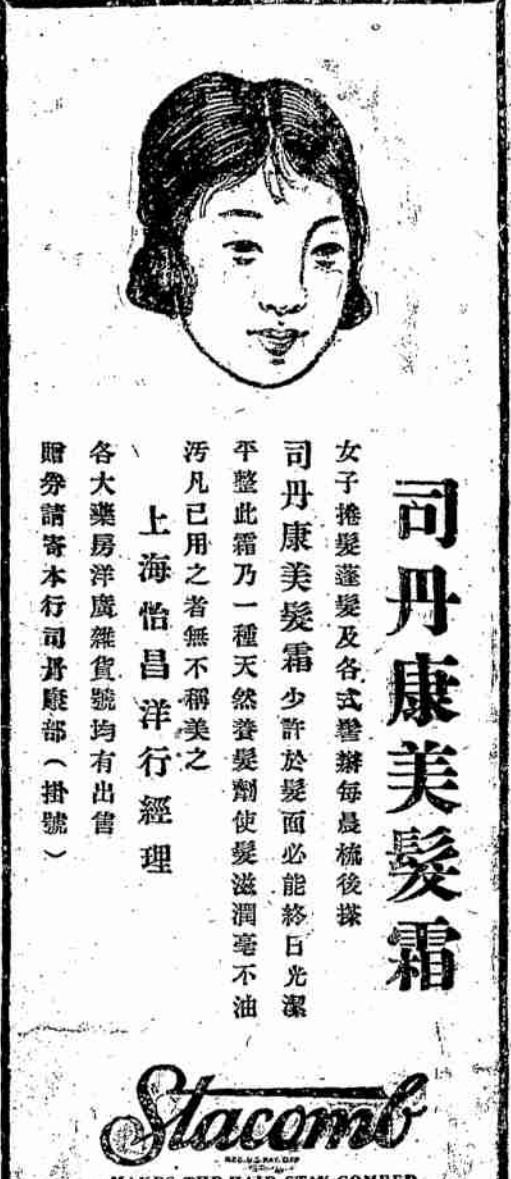 司丹康美髮霜
女子捲髮蓬髮及各式髻辮每晨梳後搽
司丹康美髮霜少許於髮面必能終日光潔
平整此霜乃一種天然養髮劑使髮滋潤毫不油
汚凡已用之者無不稱美之
上海怡昌洋行經理
各大藥房洋廣雜貨號均有出售
贈券請寄本行司丹康部（掛號）
Stacomb
REG. U.S. PAT. OFF
MAKES THE HAIR STAY COMBED